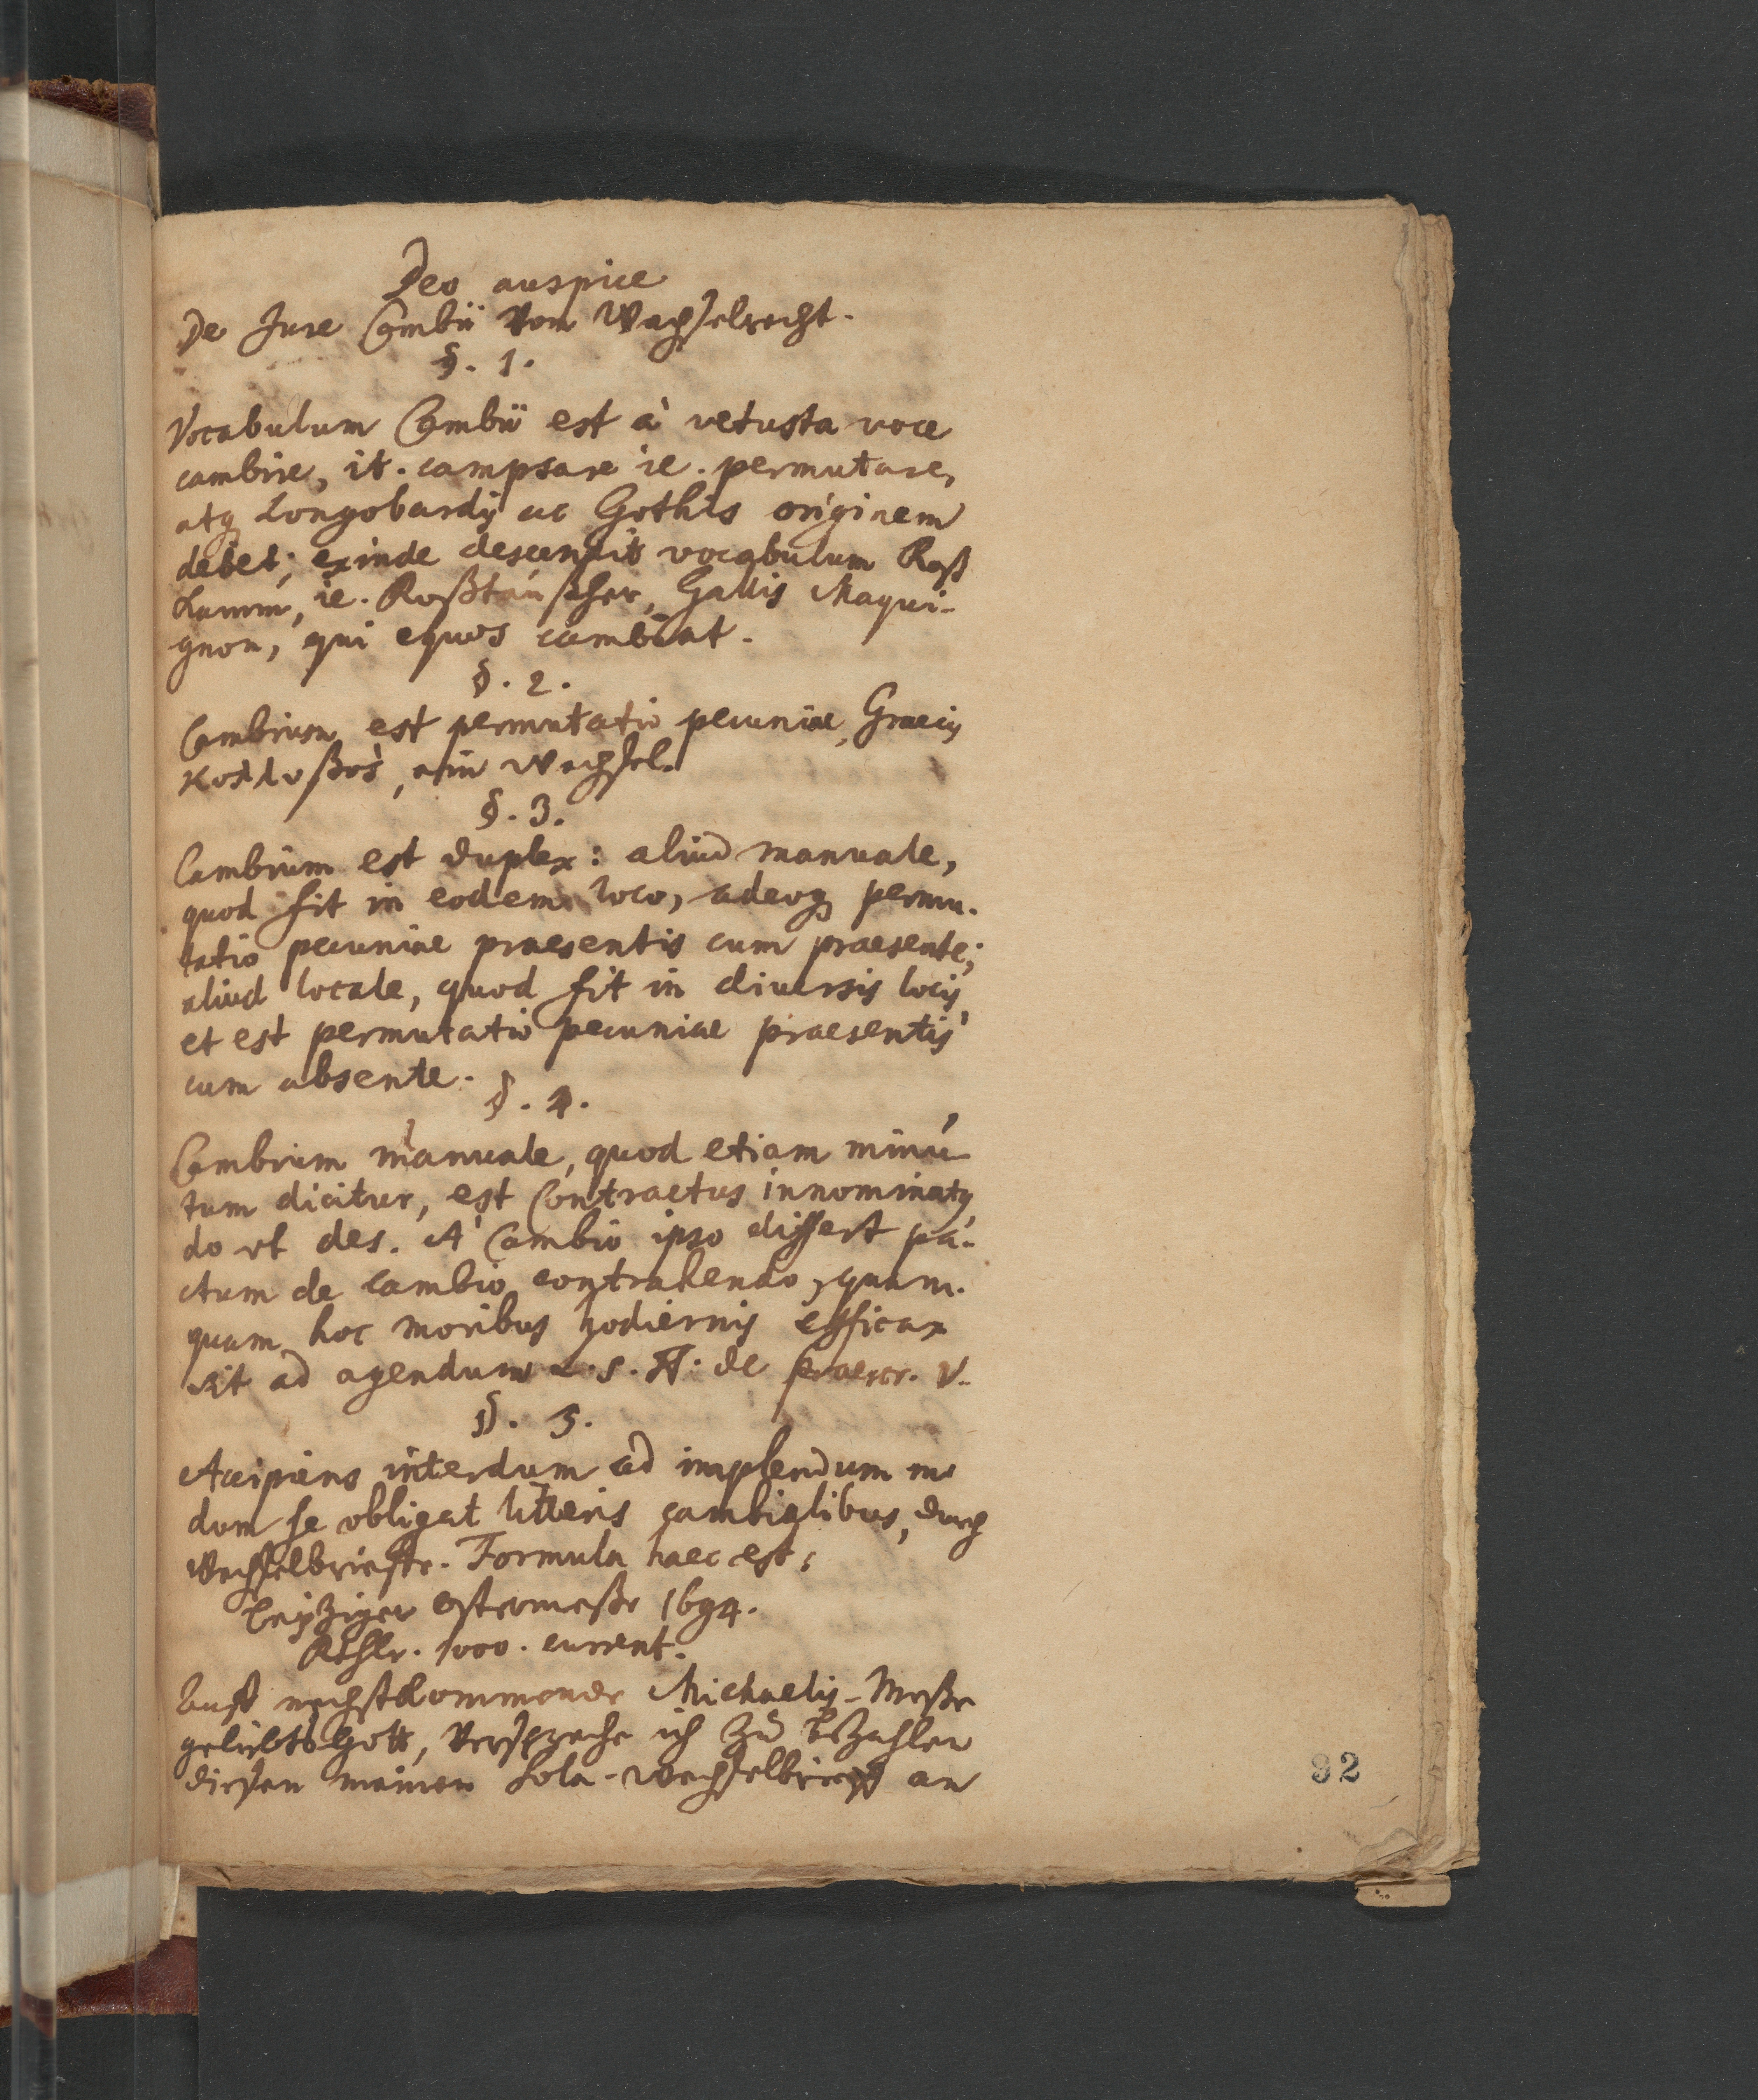 Deo auspice
De Jure Cambii Vom Wechselrecht.
§. 1.
Vocabulum Cambii est à vetusta voce
cambire, it. campsare ie. permutare,
atq Longobardis ac Gothis originem
debet; exinde descendit vocabulum Roß
kamm, ie. Roßtäuscher, Gallis Maqui-
gnon, qui equos cambiat.
§. 2.
Cambium est permutatio pecuniae, Graecis
κολλυβος, ein Wechsel.
§. 3.
Cambium est duplex: aliud manuale,
quod fit in eodem loco, adeoq permu-
tatio pecuniae praesentis cum praesente;
aliud locale, quod fit in diversis locis,
et est permutatio pecuniae praesentis
cum absente.
§. 4.
Cambium manuale, quod etiam minu-
tum dicitur, est Contractus innominatus
do ut des. A Cambio ipso differt pa-
ctum de cambio contrahendo, quam-
quam hoc moribus hodiernis efficax
sit ad agendum L. 5. ff. de praescr. V.
§. 5.
Accipiens interdum ad implendum
dum se obligat litteris cambialibus, durch
Wechselbrieffe. Formula haec est:
Leipziger Ostermeße 1694.
Rthlr. 1000. current.
Auff nechstkommende Michaelis-Meße
geliebts Gott, verspreche ich zu bezahlen
diesen meinen Sola-Wechselbrieff an
92